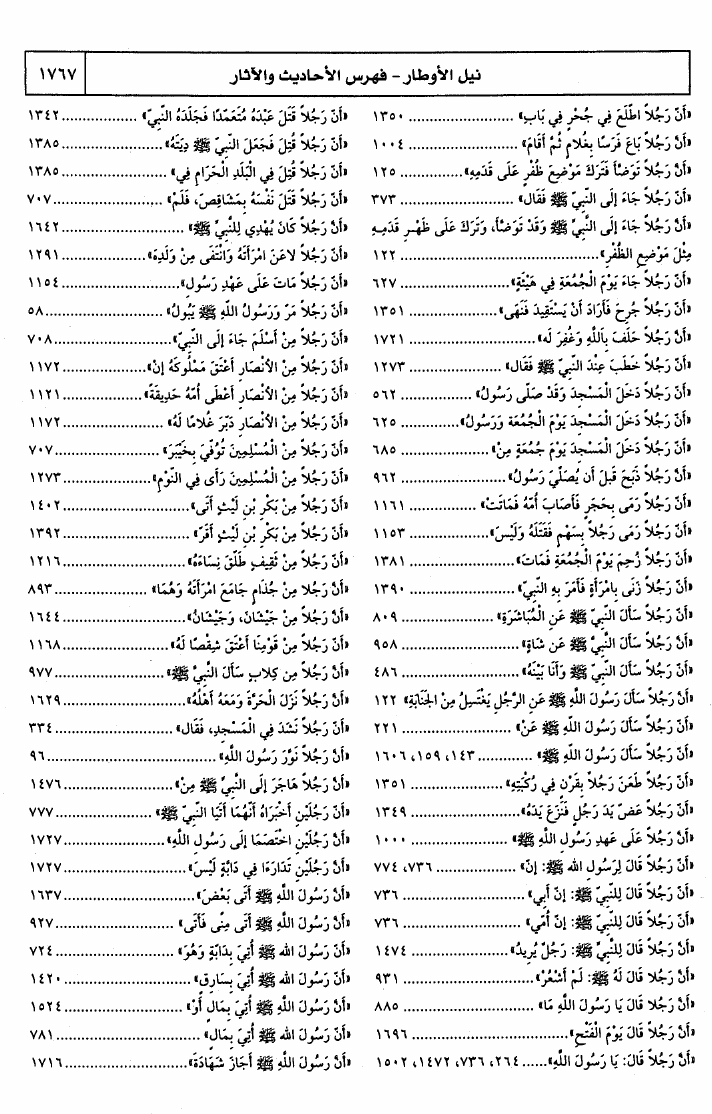 نيل الأوطار - فهرس الأحاديث والآثار
١٧٦٧
«أَنّ رَجُلاً اطَّلَعَ فِي جُحْرٍ فِي بَابِ» ..................... ١٣٥٠
«أَنّ رَجُلاً بَاعَ فَرَسًا بِغُلامٍ ثُمَّ أَقَامَ» ..................... ١٠٠٤
«أَنّ رَجُلاً تَوَضَّأَ فَتَرَكَ مَوْضِعَ ظُفْرٍ عَلَى قَدَمِهِ» ............ ١٢٥
«أَنّ رَجُلاً جَاءَ إِلَى النَّبِيِّ ﷺ فَقَالَ» ..................... ٣٧٣
«أَنّ رَجُلاً جَاءَ إِلَى النَّبِيِّ ﷺ وَقَدْ تَوَضَّأَ، وَتَرَكَ عَلَى ظَهْرِ قَدَمِهِ
مِثْلَ مَوْضِعِ الظُّفْرِ» ..................... ١٢٢
«أَنّ رَجُلاً جَاءَ يَوْمَ الْجُمُعَةِ فِي هَيْئَةٍ» ..................... ٦٢٧
«أَنّ رَجُلاً جُرِحَ فَأَرَادَ أَنْ يَسْتَقِيدَ فَنَهَى» ..................... ١٣٥١
«أَنّ رَجُلاً حَلَفَ بِاَللَّهِ وَغُفِرَ لَه» ..................... ١٧٢١
«أَنّ رَجُلاً خَطَبَ عِنْدَ النَّبِيِّ ﷺ فَقَالَ» ..................... ١٢٧٣
«أَنّ رَجُلاً دَخَلَ الْمَسْجِدَ وَقَدْ صَلَّى رَسُولُ» ............ ٥٦٢
«أَنّ رَجُلاً دَخَلَ الْمَسْجِدَ يَوْمَ الْجُمُعَةِ وَرَسُولُ» ............ ٦٢٥
«أَنّ رَجُلاً دَخَلَ الْمَسْجِدَ يَوْمَ جُمُعَةٍ مِنْ» ............ ٦٨٥
«أَنّ رَجُلاً ذَبَحَ قَبلَ أَن يُصَلِّيَ رَسُولُ» ............ ٩٦٢
«أَنّ رَجُلاً رَمَى بِحَجَرٍ فَأَصَابَ أُمَّهُ فَمَاتَتْ» ............ ١١٦١
«أَنّ رَجُلاً رَمَى رَجُلاً بِسَهْمٍ فَقَتَلَهُ وَلَيْسَ» ............ ١١٥٣
«أَنّ رَجُلاً زُحِمَ يَوْمَ الْجُمُعَةِ فَمَاتَ» ............ ١٣٨١
«أَنّ رَجُلاً زَنَى بِامْرَأَةٍ فَأَمَرَ بِهِ النَّبِيُّ» ............ ١٣٩٠
«أَنّ رَجُلاً سَأَلَ النَّبِيَّ ﷺ عَنِ الْمُبَاشَرَةِ» ............ ٨٠٩
«أَنّ رَجُلاً سَأَلَ النَّبِيَّ ﷺ عَن شَاةٍ» ............ ٩٥٨
«أَنّ رَجُلاً سَأَلَ النَّبِيَّ ﷺ وَأَنَا بَيْنَهُ» ............ ٤٨٦
«أَنّ رَجُلاً سَأَلَ رَسُولَ اللَّهِ ﷺ عَنِ الرَّجُلِ يَغْتَسِلُ مِنْ الْجَنَابَةِ» ١٢٢
«أَنّ رَجُلاً سَأَلَ رَسُولَ اللَّهِ ﷺ عَنْ» ............ ٢٢١
«أَنّ رَجُلاً سَأَلَ رَسُولَ اللَّهِ ﷺ» ............ ١٤٣، ١٥٩، ١٦٠٦
«أَنّ رَجُلاً طَعَنَ رَجُلاً بِقَرْنٍ فِي رُكْبَتِهِ» ............ ١٣٥١
«أَنّ رَجُلاً عَضَّ يَدَ رَجُلٍ فَنَزَعَ يَدَهُ» ............ ١٣٤٩
«أَنّ رَجُلاً عَلَى عَهدِ رَسُولِ اللَّهِ ﷺ» ............ ١٠٠٠
«أَنّ رَجُلاً قَالَ لِرَسُولِ الله ﷺ: إِنّ» ............ ٧٣٦، ٧٧٤
«أَنّ رَجُلاً قَالَ لِلنَّبِيِّ ﷺ: إِنّ أَبِي» ............ ٧٣٦
«أَنّ رَجُلاً قَالَ لِلنَّبِيِّ ﷺ: إِنّ أُمِّي» ............ ٧٣٦
«أَنّ رَجُلاً قَالَ لِلنَّبِيِّ ﷺ: رَجُلٌ يُرِيدُ» ............ ١٤٧٤
«أَنّ رَجُلا قَالَ لَهُ ﷺ: لَمْ أَشْعُرْ» ............ ٩٣١
«أَنّ رَجُلاً قَالَ يَا رَسُولَ اللَّهِ مَا» ............ ٨٨٥
«أَنّ رَجُلاً قَالَ يَوْمَ الْفَتْحِ» ............ ١٦٩٦
«أَنّ رَجُلاً قَالَ: يَا رَسُولَ اللَّهِ» ...... ٢٦٤، ٧٣٦، ١٤٧٢، ١٥٠٢
«أَنّ رَجُلاً قَتَلَ عَبْدَهُ مُتَعَمِّدًا فَجَلَدَهُ النَّبِيّ» ............ ١٣٤٢
«أَنّ رَجُلاً قُتِلَ فَجَعَلَ النَّبِيّ ﷺ دِيَتَهُ» ............ ١٣٨٥
«أَنّ رَجُلاً قُتِلَ فِي الْبَلَدِ الْحَرَامِ فِي» ............ ١٣٨٥
«أَنّ رَجُلاً قَتَلَ نَفْسَهُ بِمَشَاقِصَ، فَلَمْ» ............ ٧٠٧
«أَنّ رَجُلاً كَانَ يُهْدِي لِلنَّبِيِّ ﷺ» ............ ١٦٤٢
«أَنّ رَجُلاً لاعَنَ امْرَأَتَهُ وَانْتَفَى مِنْ وَلَدِهَ» ............ ١٢٩١
«أَنّ رَجُلاً مَاتَ عَلَى عَهْدِ رَسُولِ» ............ ١١٥٤
«أَنّ رَجُلاً مَرّ وَرَسُولُ اللَّهِ ﷺ يَبُولُ» ............ ٥٨
«أَنّ رَجُلاً مِنْ أَسْلَمَ جَاءَ إِلَى النَّبِيِّ» ............ ٧٠٨
«أَنّ رَجُلاً مِنْ الأَنْصَارِ أَعْتَقَ مَمْلُوكَهُ إِنْ» ............ ١١٧٢
«أَنّ رَجُلاً مِنْ الأَنْصَارِ أَعْطَى أُمَّهُ حَدِيقَةً» ............ ١١٢١
«أَنّ رَجُلاً مِنْ الأَنْصَارِ دَبّرَ غُلامًا لَهُ» ............ ١١٧٢
«أَنّ رَجُلاً مِنْ الْمُسْلِمِينَ تُوُفِّيَ بِخَيْبَرَ» ............ ٧٠٧
«أَنّ رَجُلاً مِنْ الْمُسْلِمِينَ رَأَى فِي النَّوْمِ» ............ ١٢٧٣
«أَنّ رَجُلاً مِنْ بَكْرِ بْنِ لَيْثٍ أَتَى» ............ ١٤٠٢
«أَنّ رَجُلاً مِنْ بَكْرِ بْنِ لَيْثٍ أَقَرّ» ............ ١٣٩٢
«أَنّ رَجُلاً مِنْ ثَقِيفٍ طَلَّقَ نِسَاءَهُ» ............ ١٢١٦
«أَنّ رَجُلاً مِنْ جُذَامٍ جَامَعَ امْرَأَتَهُ وَهُمَا» ............ ٨٩٣
«أَنّ رَجُلاً مِنْ جَيْشَانَ، وَجَيْشَانُ» ............ ١٦٤٤
«أَنّ رَجُلاً مِنْ قَوْمِنَا أَعْتَقَ شِقْصًا لَهُ» ............ ١١٦٨
«أَنّ رَجُلاً مِن كِلابٍ سَأَلَ النَّبِيَّ ﷺ» ............ ٩٧٧
«أَنّ رَجُلاً نَزَلَ الْحَرّةَ وَمَعَهُ أَهْلُهُ» ............ ١٦٢٩
«أَنّ رَجُلاً نَشَدَ فِي الْمَسْجِدِ، فَقَالَ» ............ ٣٣٤
«أَنّ رَجُلاً نَوّرَ رَسُولَ اللَّهِ» ............ ٩٦
«أَنّ رَجُلاً هَاجَرَ إِلَى النَّبِيِّ ﷺ مِنْ» ............ ١٤٧٦
«أَنّ رَجُلَيْنِ أَخْبَرَاهُ أَنَّهُمَا أَتَيَا النَّبِيّ ﷺ» ............ ٧٧٧
«أَنّ رَجُلَيْنِ اخْتَصَمَا إِلَى رَسُولِ اللَّهِ» ............ ١٧٢٧
«أَنّ رَجُلَيْنِ تَدَارَءَا فِي دَابَّةٍ لَيْسَ» ............ ١٧٢٧
«أَنّ رَسُولَ اللَّهِ ﷺ أَتَى بَعْضَ» ............ ١٦٣٧
«أَنّ رَسُولَ اللَّهِ ﷺ أَتَى مِنًى فَأَتَى» ............ ٩٢٧
«أَنّ رَسُولَ الله ﷺ أُتِيَ بِدَابَّةٍ وَهُوَ» ............ ٧٢٤
«أَنّ رَسُولَ الله ﷺ أُتِيَ بِسَارِقٍ» ............ ١٤٢٠
«أَنّ رَسُولَ اللَّهِ ﷺ أُتِيَ بِمَالٍ أَوْ» ............ ١٥٢٤
«أَنّ رَسُولَ الله ﷺ أُتِيَ بِمَالٍ» ............ ٧٨١
«أَنّ رَسُولَ اللَّهِ ﷺ أَجَازَ شَهَادَةَ» ............ ١٧١٦